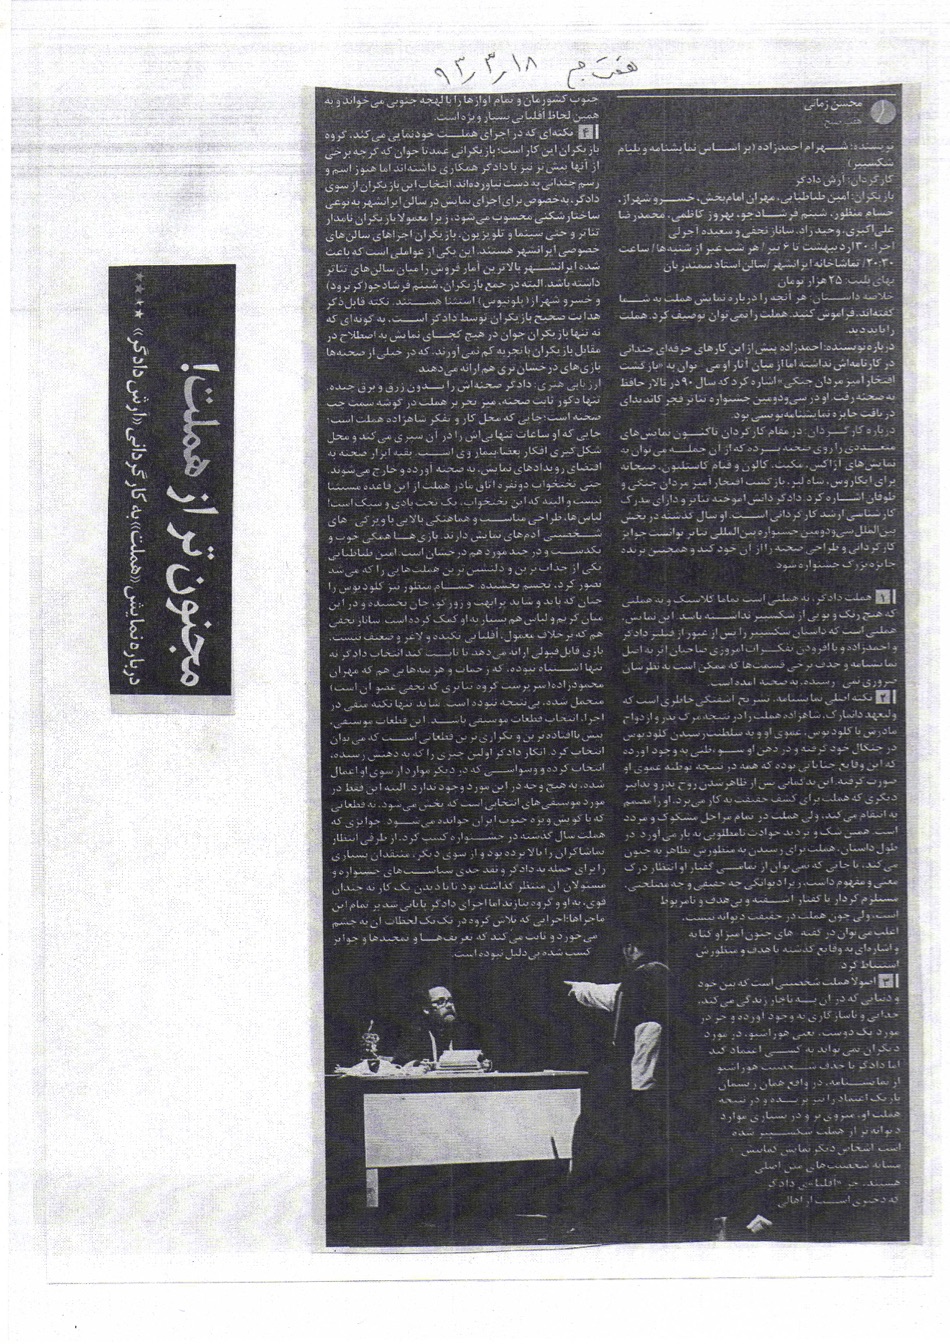 هفت صبح ۹۳/۳/۱۸
مجنون‌تر از هملت!
درباره نمایش «هملت» به کارگردانی «آرش دادگر»
محسن زمانی
هفت صبح
نویسنده: شهرام احمدزاده (بر اساس نمایشنامه ویلیام
شکسپیر)
کارگردان: آرش دادگر
بازیگران: امین طباطبایی، مهران امام‌بخش، خسرو شهراز،
حسام منظور، شبنم فرشادجو، بهروز کاظمی، محمدرضا
علی‌اکبری، وحید راد، ساناز نجفی و سعیده آجرلی
اجرا: ۳۰ اردیبهشت تا ۶ تیر/ هر شب غیر از شنبه‌ها/ ساعت
۲۰:۳۰/ تماشاخانه ایرانشهر/ سالن استاد سمندریان
بهای بلیت: ۲۵ هزار تومان
خلاصه داستان: هر آنچه را درباره نمایش هملت به شما
گفته‌اند، فراموش کنید. هملت را نمی‌توان توصیف کرد. هملت
را باید دید.
درباره نویسنده: احمدزاده پیش از این کارهای حرفه‌ای چندانی
در کارنامه‌اش نداشته اما از میان آثار او می‌توان به «بازگشت
افتخارآمیز مردان جنگی» اشاره کرد که سال ۹۰ در تالار حافظ
به صحنه رفت. او در سی‌ودومین جشنواره تئاتر فجر کاندیدای
دریافت جایزه نمایشنامه‌نویسی بود.
درباره کارگردان: در مقام کارگردان تاکنون نمایش‌های
متعددی را روی صحنه برده که از آن جمله می‌توان به
نمایش‌های آژاکس، مکبث، کالون و قیام کاستلیون، صبحانه
برای ایکاروس، شاه لیر، بازگشت افتخارآمیز مردان جنگی و
طوفان اشاره کرد. دادگر دانش‌آموخته تئاتر و دارای مدرک
کارشناسی ارشد کارگردانی است. او سال گذشته در بخش
بین‌الملل سی‌ودومین جشنواره بین‌المللی تئاتر توانست جوایز
کارگردانی و طراحی صحنه را از آن خود کند و همچنین برنده
جایزه بزرگ جشنواره شود.
۱ هملت دادگر، نه هملتی است تماما کلاسیک و نه هملتی
که هیچ رنگ و بویی از شکسپیر نداشته باشد. این نمایش
هملتی است که داستان شکسپیر را پس از عبور از فیلتر دادگر
و احمدزاده و با افزودن تفکرات امروزی صاحبان اثر به اصل
نمایشنامه و حذف برخی قسمت‌ها که ممکن است به نظرشان
ضروری نمی‌رسیده، به صحنه آمده است.
۲ نکته اصلی نمایشنامه، تشریح آشفتگی خاطری است که
ولیعهد دانمارک، شاهزاده هملت را در نتیجه مرگ پدر و ازدواج
مادرش با کلودیوس، عموی او و به سلطنت رسیدن کلودیوس
در چنگال خود گرفته و در ذهن او سوءظنی به وجود آورده
که این وقایع جنایاتی بوده که همه در نتیجه توطئه عموی او
صورت گرفته. این بدگمانی پس از ظاهر شدن روح پدر و تدابیر
دیگری که هملت برای کشف حقیقت به کار می‌برد، او را مصمم
به انتقام می‌کند، ولی هملت در تمام مراحل مشکوک و مردد
است. همین شک و تردید حوادث نامطلوبی به بار می‌آورد. در
طول داستان، هملت برای رسیدن به منظورش تظاهر به جنون
می‌کند، تا جایی که نمی‌توان از تمامی گفتار او انتظار درک
معنی و مفهوم داشت، زیرا دیوانگی چه حقیقی و چه مصلحتی،
مستلزم کردار یا گفتار آشفته و بی‌هدف و نامربوط
است، ولی چون هملت در حقیقت دیوانه نیست،
اغلب می‌توان در گفته‌های جنون‌آمیز او کنایه
و اشاره‌ای به وقایع گذشته یا هدف و منظورش
استنباط کرد.
۳ اصولا هملت شخصیتی است که بین خود
و دنیایی که در آن به ناچار زندگی می‌کند،
جدایی و ناسازگاری به وجود آورده و جز در
مورد یک دوست، یعنی هوراشیو، در مورد
دیگران نمی‌تواند به کسی اعتماد کند
اما دادگر با حذف شخصیت هوراشیو
از نمایشنامه، در واقع همان ریسمان
باریک اعتماد را نیز بریده و در نتیجه
هملت او، منزوی‌تر و در بسیاری موارد
دیوانه‌تر از هملت شکسپیر شده
است. اشخاص دیگر نمایش کمابیش
مشابه شخصیت‌های متن اصلی
هستند، جز «افلیا»ی دادگر
که دختری است از اهالی
جنوب کشورمان و تمام آوازها را با لهجه جنوبی می‌خواند و به
همین لحاظ افلیایی بسیار ویژه است.
۴ نکته‌ای که در اجرای هملت خودنمایی می‌کند، گروه
بازیگران این کار است؛ بازیگرانی عمدتا جوان که گرچه برخی
از آنها پیش‌تر نیز با دادگر همکاری داشته‌اند اما هنوز اسم و
رسم چندانی به دست نیاورده‌اند. انتخاب این بازیگران از سوی
دادگر، به‌خصوص برای اجرای نمایش در سالن ایرانشهر به نوعی
ساختارشکنی محسوب می‌شود، زیرا معمولا بازیگران نامدار
تئاتر و حتی سینما و تلویزیون، بازیگران اجراهای سالن‌های
خصوصی ایرانشهر هستند. این یکی از عواملی است که باعث
شده ایرانشهر بالاترین آمار فروش را میان سالن‌های تئاتر
داشته باشد. البته در جمع بازیگران، شبنم فرشادجو (گرترود)
و خسرو شهراز (پلونیوس) استثنا هستند. نکته قابل ذکر
هدایت صحیح بازیگران توسط دادگر است، به گونه‌ای که
نه تنها بازیگران جوان در هیچ کجای نمایش به اصطلاح در
مقابل بازیگران با تجربه کم نمی‌آورند، که در خیلی از صحنه‌ها
بازی‌های درخشان‌تری هم ارائه می‌دهند.
ارزیابی هنری: دادگر صحنه‌اش را بدون زرق و برق چیده.
تنها دکور ثابت صحنه، میز تحریر هملت در گوشه سمت چپ
صحنه است؛ جایی که محل کار و تفکر شاهزاده هملت است؛
جایی که او ساعات تنهایی‌اش را در آن سپری می‌کند و محل
شکل‌گیری افکار بعضا بیمار وی است. بقیه ابزار صحنه به
اقتضای رویدادهای نمایش، به صحنه آورده و خارج می‌شوند.
حتی تختخواب دونفره اتاق مادر هملت از این قاعده مستثنا
نیست و البته که این تختخواب، یک تخت بادی و سبک است.
لباس‌ها، طراحی مناسب و هماهنگی بالایی با ویژگی‌های
شخصیتی آدم‌های نمایش دارند. بازی‌ها همگی خوب و
یکدست و در چند مورد هم درخشان است. امین طباطبایی
یکی از جذاب‌ترین و دلنشین‌ترین هملت‌هایی را که می‌شد
تصور کرد، تجسم بخشیده. حسام منظور نیز کلودیوس را
چنان که باید و شاید پرابهت و زورگو، جان بخشیده و در این
میان گریم و لباس هم بسیار به او کمک کرده است. ساناز نجفی
هم که برخلاف معمول، افلیایی تکیده و لاغر و ضعیف نیست
بازی قابل قبولی ارائه می‌دهد تا ثابت کند انتخاب دادگر نه
تنها اشتباه نبوده، که زحمات و هزینه‌هایی هم که مهران
محمودزاده (سرپرست گروه تئاتری که نجفی عضو آن است)
متحمل شده، بی‌نتیجه نبوده است. شاید تنها نکته منفی در
اجرا، انتخاب قطعات موسیقی باشد. این قطعات موسیقی،
پیش‌پاافتاده‌ترین و تکراری‌ترین قطعاتی است که می‌توان
انتخاب کرد. انگار دادگر اولین چیزی را که به ذهنش رسیده،
انتخاب کرده و وسواسی که در دیگر موارد از سوی او اعمال
شده، به هیچ وجه در این مورد وجود ندارد. البته این فقط در
مورد موسیقی‌های انتخابی است که پخش می‌شود، نه قطعاتی
که با گویش ویژه جنوب ایران خوانده می‌شود. جوایزی که
هملت سال گذشته در جشنواره کسب کرد، از طرفی انتظار
تماشاگران را بالا برده بود و از سوی دیگر، منتقدان بسیاری
را برای حمله به دادگر و نقد جدی سیاست‌های جشنواره و
مسئولان آن منتظر گذاشته بود تا با دیدن یک کار نه چندان
قوی، به او و گروه بتازند اما اجرای دادگر پایانی شد بر تمام این
ماجراها؛ اجرایی که تلاش گروه در تک‌تک لحظات آن به چشم
می‌خورد و ثابت می‌کند که تعریف‌ها و تمجیدها و جوایز
کسب شده بی‌دلیل نبوده است.